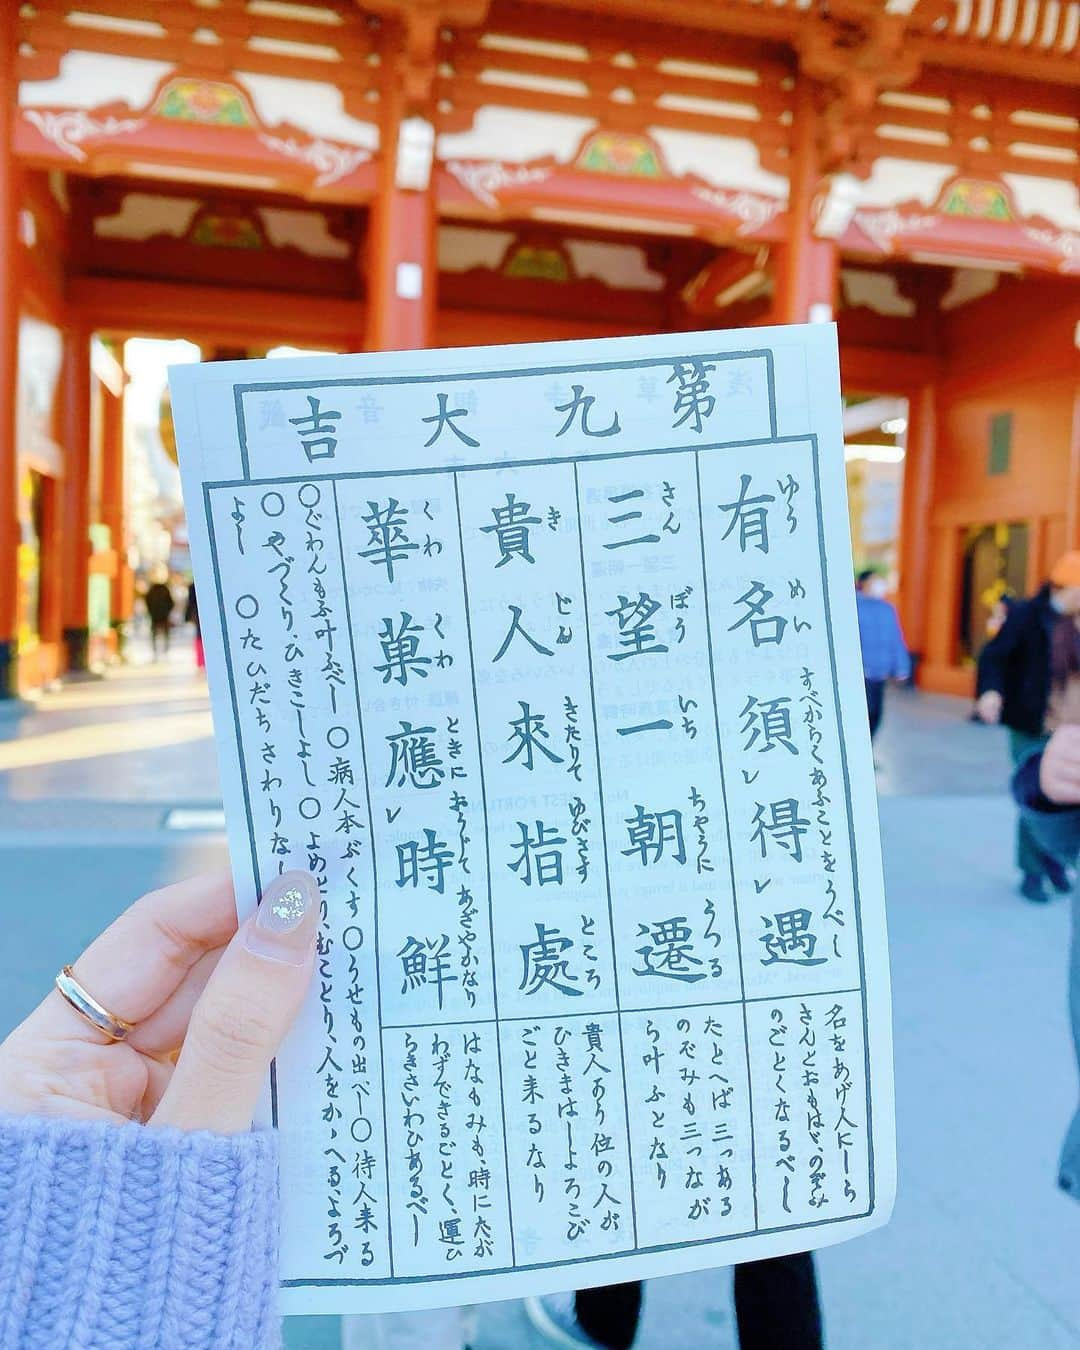 第九大吉
有名須レ得レ遇
ゆう めい すべからくあふことをうべし
名をあげ人にしら
さんとおもはゞ、のぞみ
のごとくなるべし
三望一朝遷
さん ぼう いち ちやうに うつる
たとへば三つある
のぞみも三つなが
ら叶ふとなり
貴人來指處
き じん きたりて ゆびさす ところ
貴人あり位の人が
ひきまはしよろこび
ごと来るなり
華菓應レ時鮮
くわ くわ ときに おうじて あざやかなり
はなもみも、時にたが
わずできるごとく、運ひ
らきさいわひあるべし
〇ぐわんもふ叶ふべし 〇病人本ぶくす 〇うせもの出べし 〇待人来る
〇やづくり、ひきこしよし 〇よめとり、むことり、人をかゝへる、よろづ
よし 〇たびだちさわりなし